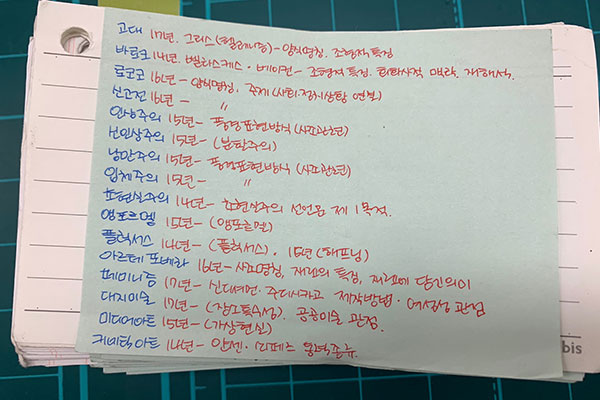 고대 17년. 그리스(헬레니즘) - 양식명칭, 조형적특징
바로크 14년. 벨라스케스 · 베이컨 - 조형적 특징. 회화사적 맥락. 재해석.
로코코 16년 - 양식명칭, 주제 (사회.정치상황 연결)
신고전 16년 - 〃
인상주의 15년 - 풍경표현방식 (사고관련)
신인상주의 15년 - (분할주의)
낭만주의 15년 - 풍경표현방식 (사고관련)
입체주의 15년 - 〃
표현주의 14년 - 표현주의 선언문 제1목적.
앵포르멜 15년 - (앵포르멜)
플럭서스 14년 - (플럭서스) · 15년 (해프닝)
아르테 포베라 16년 - 사조명칭, 재료의 특징, 재료에 담긴의미
페미니즘 17년 - 신디셔먼. 주디시카고 제작방법 · 여성성 관점
대지미술 17년 - (장소특수성). 공공미술 관점.
미디어아트 15년 - (가상현실)
키네틱아트 14년 - 얀센.
bis